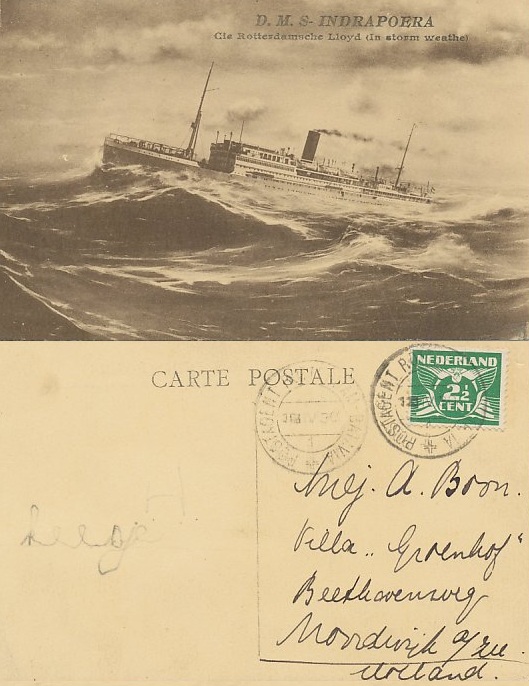 D. M. S- INDRAPOERA
Cie Rotterdamsche Lloyd (In storm weathe)
CARTE POSTALE
NEDERLAND
2½
CENT
POSTAGENT
POSTAGENT
BATAVIA
Mej. A. Boon.
Villa „Groenhof"
Beethovenweg
Noordwijk a/zee.
Holland.